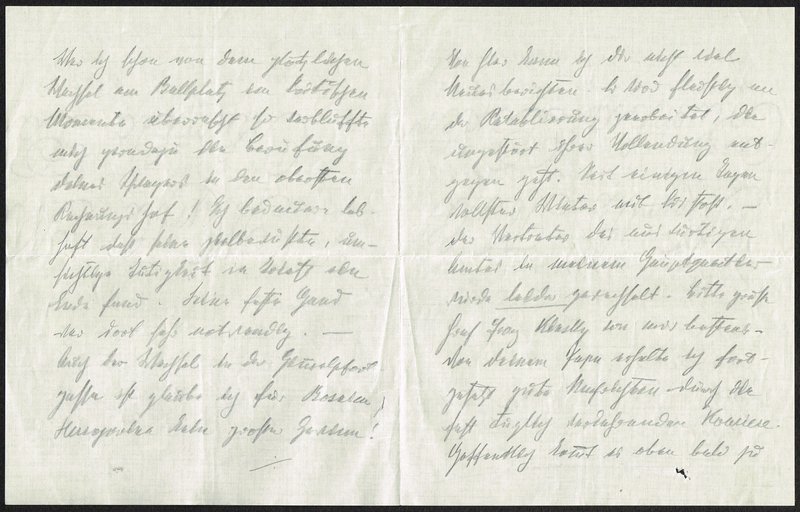 War ich schon von dem plötzlichen
Wechsel am Ballplatz im kritischen
Momente überrascht so verblüffte
mich geradezu die Berufung
deines Schwagers in den obersten
Rechnungshof! Ich bedauere leb-
haft daß seine zielbewußte, um-
sichtige Tätigkeit in
Ende fand. Seine feste Hand
war dort sehr notwendig. —
Auch der Wechsel in der Himmelpfort
gasse ist glaube ich für Bosnien,
Herzegovina kein großer Gewinn!
Von hier kann ich dir nicht viel
Neues berichten. Es wird fleißig an
der Retablierung gearbeitet, die
ungestört ihrer Vollendung ent-
gegen geht. Seit einigen Tagen
vollster Winter mit —
der Vertreter des auswärtigen
Amtes in meinem Hauptquartier
wurde leider gewechselt. Bitte grüße
Graf Franz von mir bestens.
Von deinem Papa erhalte ich fort-
gesetzt gute Nachrichten durch die
fast täglich verkehrenden Kouriere.
Hoffentlich kommt es oben bald zu